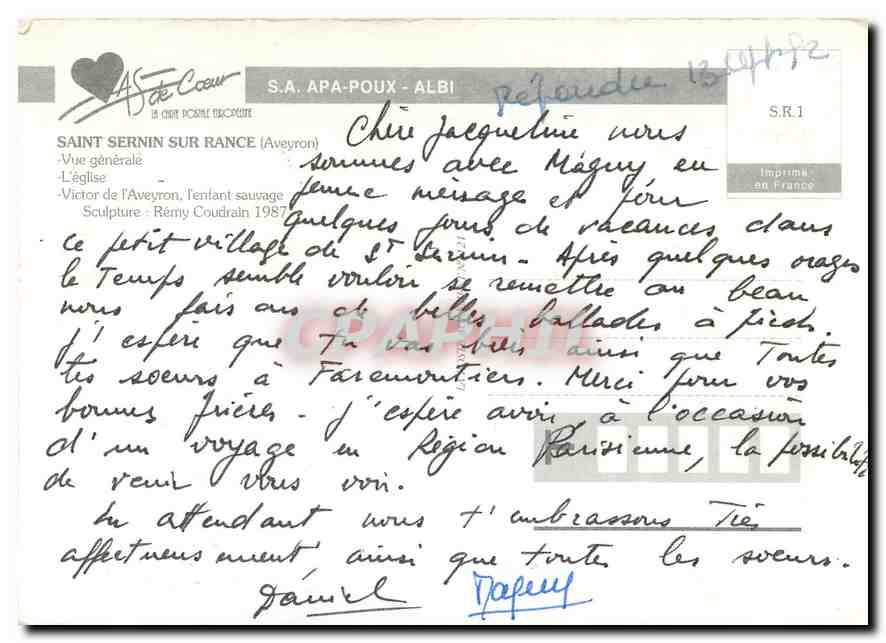 AS de Cœur
LA CARTE POSTALE EUROPEENNE
S.A. APA-POUX - ALBI
Répondu 13 sept 92
S.R.1
Imprimé
en France
SAINT SERNIN SUR RANCE (Aveyron)
-Vue générale
-L'église
-Victor de l'Aveyron, l'enfant sauvage
Sculpture : Rémy Coudrain 1987
Chère Jacqueline nous
sommes avec Maguy en
jeune ménage et pour
quelques jours de vacances dans
ce petit village de St Sernin - Après quelques orages
le Temps semble vouloir se remettre au beau
nous faisons de belles ballades à pieds.
J'espère que tu vas bien ainsi que Toutes
tes soeurs à Faremoutiers. Merci pour vos
bonnes prières - J'espère avoir, à l'occasion
d'un voyage en Région Parisienne, la possibilité
de venir vous voir.
En attendant nous t'embrassons Très
affectueusement, ainsi que toutes les soeurs.
Daniel Maguy
CPAPHIL